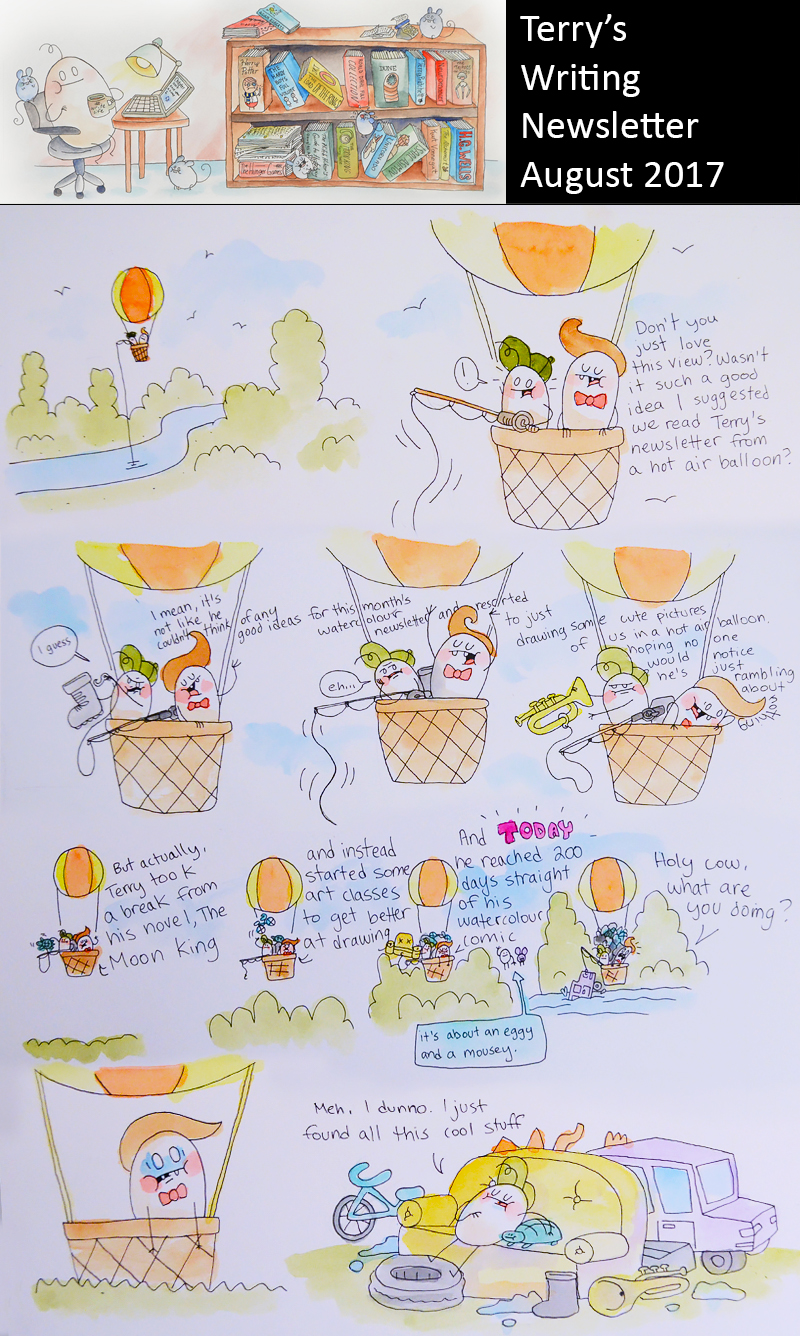 Terry's
Writing
Newsletter
August 2017
Harry
Potter
DUNE
The Hunger Games
H.G. WELLS
Don't you
just love
this view? Wasn't
it such a good
idea I suggested
we read Terry's
newsletter from
a hot air balloon?
!
I guess
I mean, it's
not like he
couldn't think of any
good ideas for this month's
watercolour newsletter and resorted
to just
drawing some cute pictures
of us in a hot air balloon,
hoping no one
would notice
he's just
rambling
about
nothing
eh...
But actually,
Terry took
a break from
his novel, The
Moon King
and instead
started some
art classes
to get better
at drawing
And TODAY
he reached 200
days straight
of his
watercolour
comic
it's about an eggy
and a mousey.
Holy cow,
what are
you doing?
Meh, I dunno. I just
found all this cool stuff